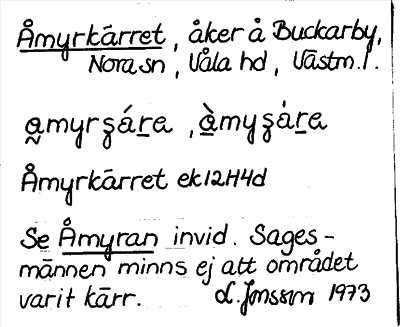 Åmyrkärret, åker å Buckarby,
Nora sn, Våla hd, Västm.l.
a̰myrʂára, à̱myʂára
Åmyrkärret ek12H4d
Se Åmyran invid. Sages-
männen minns ej att området
varit kärr. L. Jonsson 1973